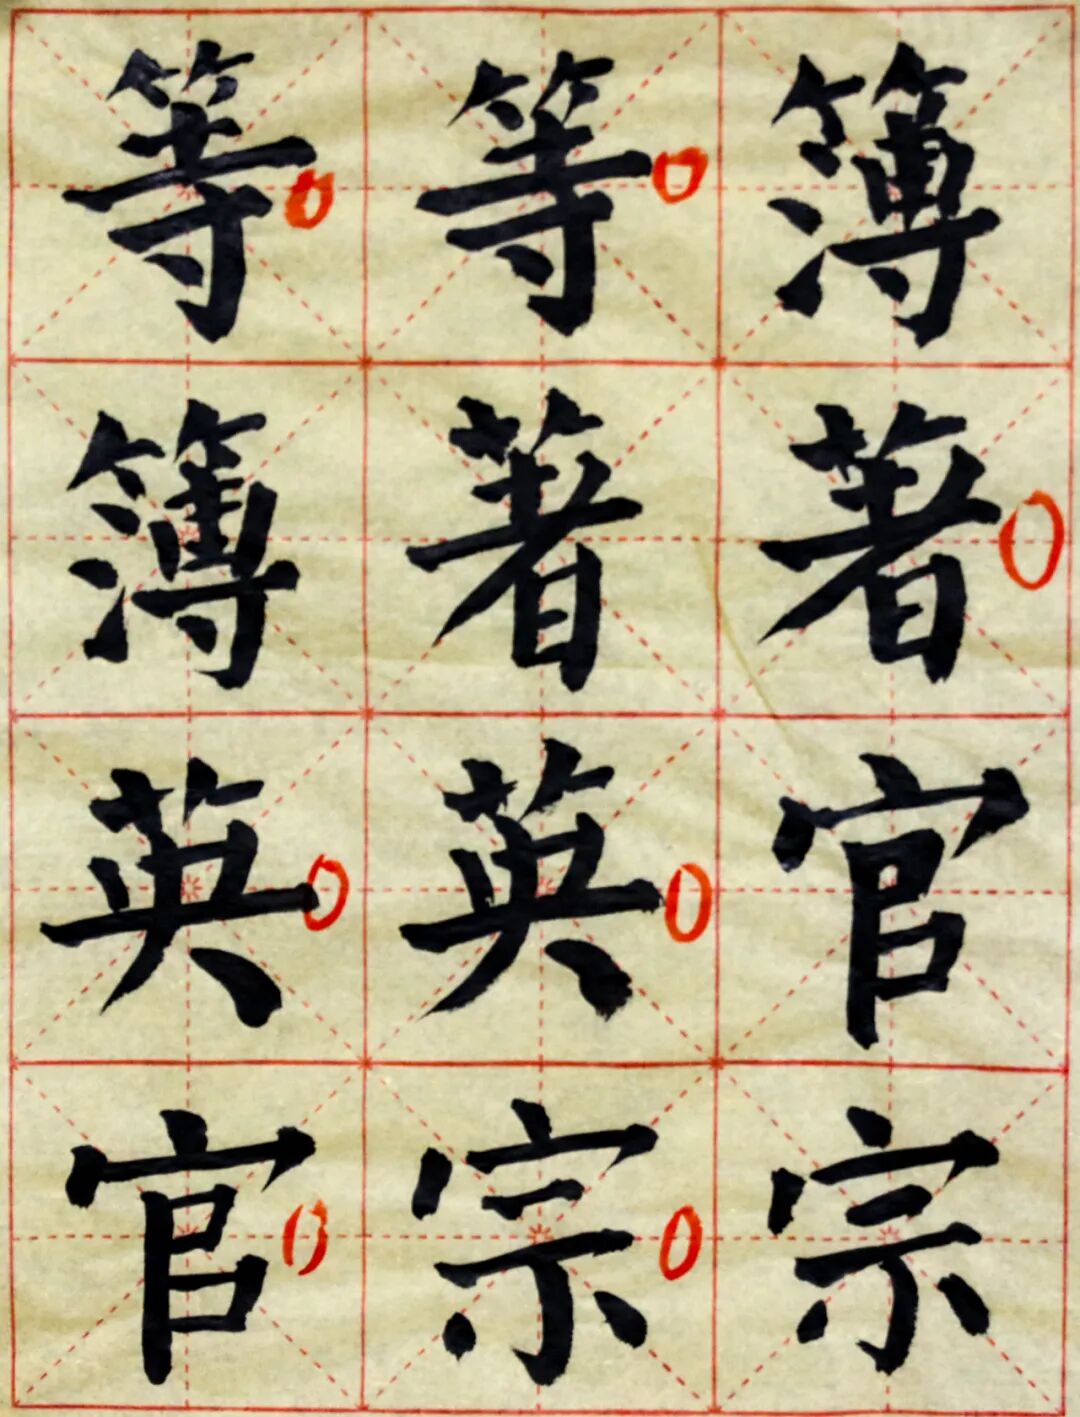 等等簿
簿著著
英英官
官宗宗